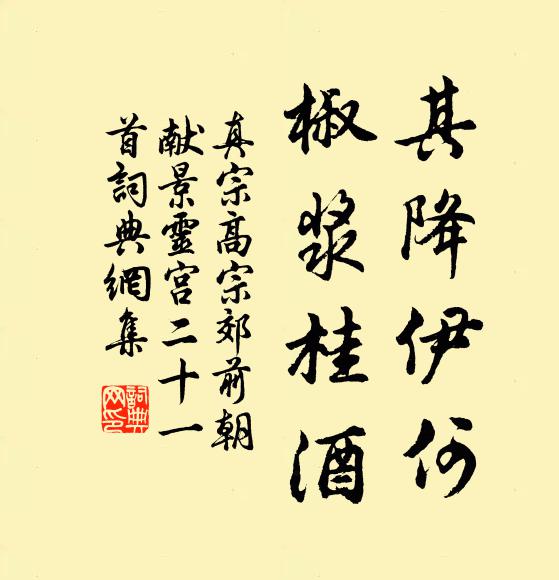 其降伊何
椒浆桂酒
真宗高宗郊前朝
献景靈宫二十一
首詞典網集
詞典
网印